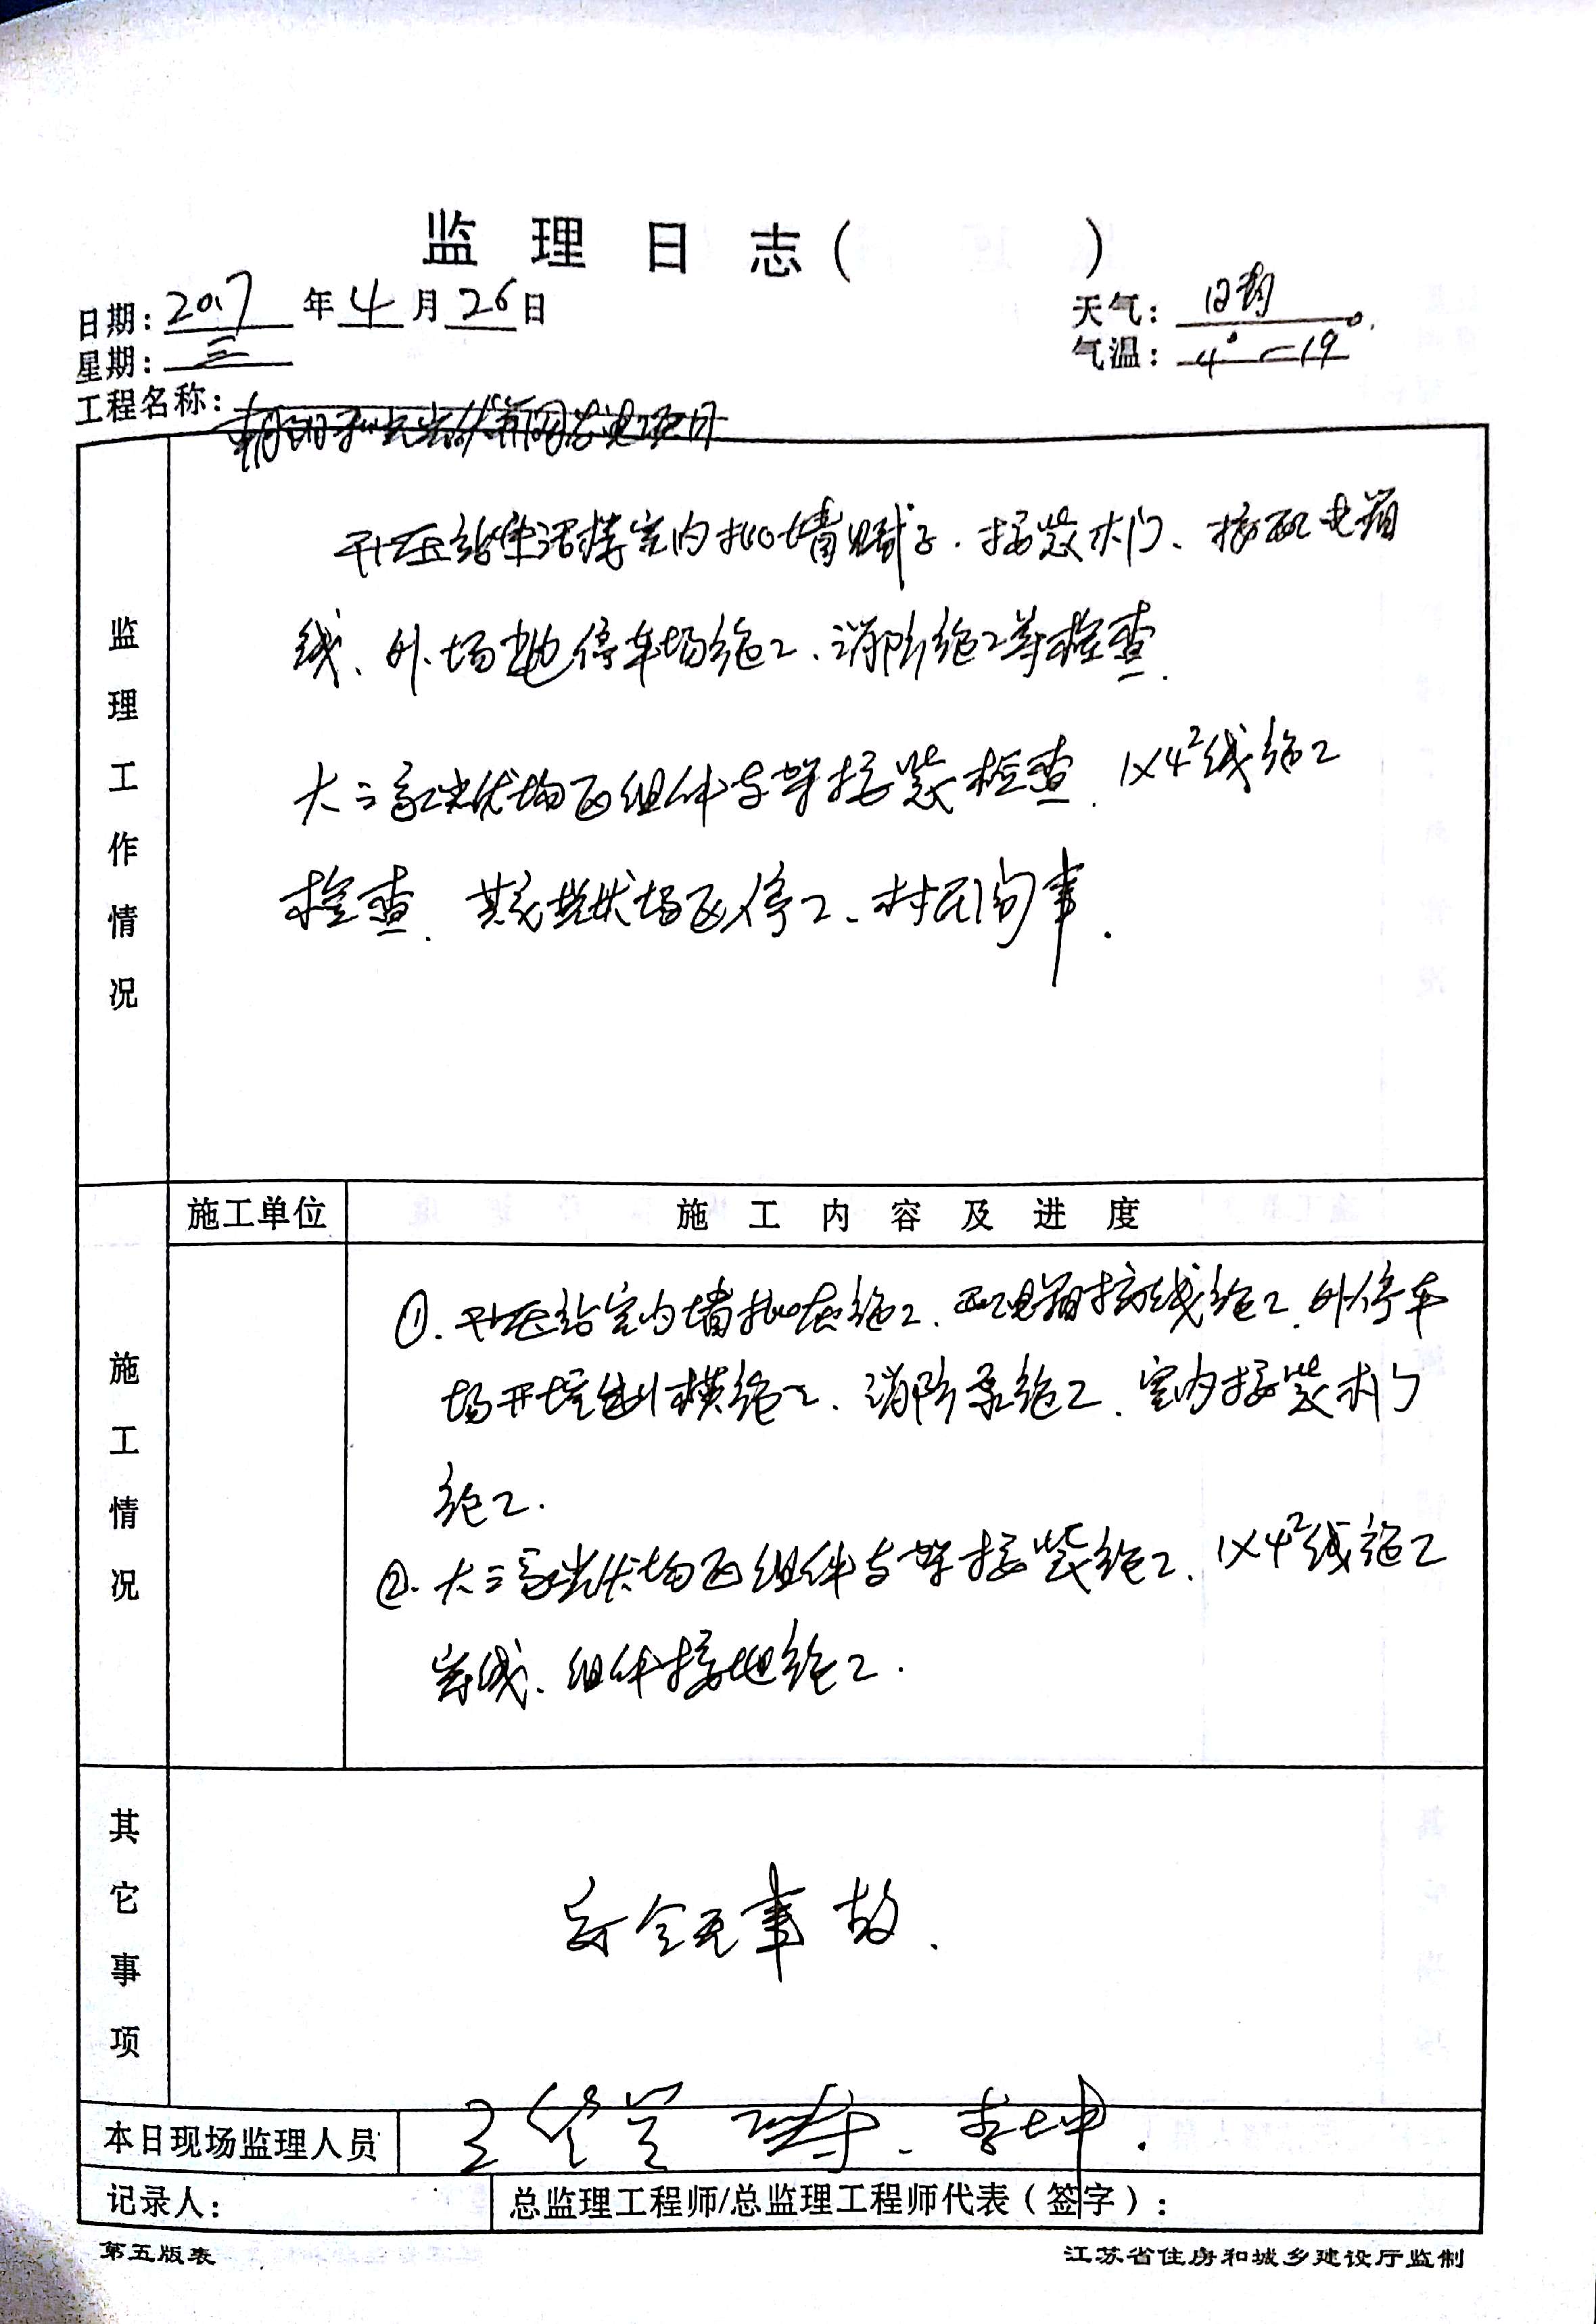 监 理 日 志 (　　　)
日期: 2017 年 4 月 26 日
天气: 日均
星期: 三
气温: 4° — 19°.
工程名称: 朝阳 发电项目
监理工作情况
升压站生活楼室内批墙腻子、接装木门、接配电箱
线、外场地停车场施工、消防施工等检查.
大三家光伏场区组件支架接装检查、1×4²线施工
检查. 其它光伏场区停工、村民闹事.
施工单位
施 工 内 容 及 进 度
施工情况
①. 升压站室内墙批灰施工、配电箱接线施工、外停车
场开挖 模施工、消防泵施工、室内接装木门
施工.
②. 大三家光伏场区组件支架接装施工、1×4²线施工
穿线、组件接地施工.
其它事项
安全无事故.
本日现场监理人员
王 李坤.
记录人:
总监理工程师/总监理工程师代表（签字）:
第五版表
江苏省住房和城乡建设厅监制